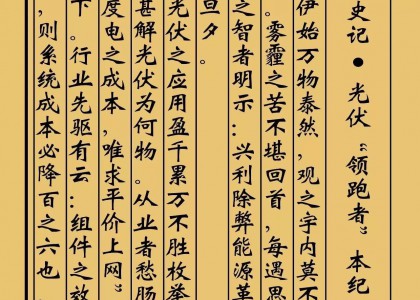 史记●光伏“领跑者”本纪
伊始万物泰然，观之宇内莫不
。雾霾之苦不堪回首，每遇思
之智者明示：兴利除弊能源革
旦夕。
光伏之应用盈千累万不胜枚举
甚解光伏为何物。从业者愁肠
度电之成本，唯求平价上网”
下。行业先驱有云：组件之效
，则系统成本必降百之六也